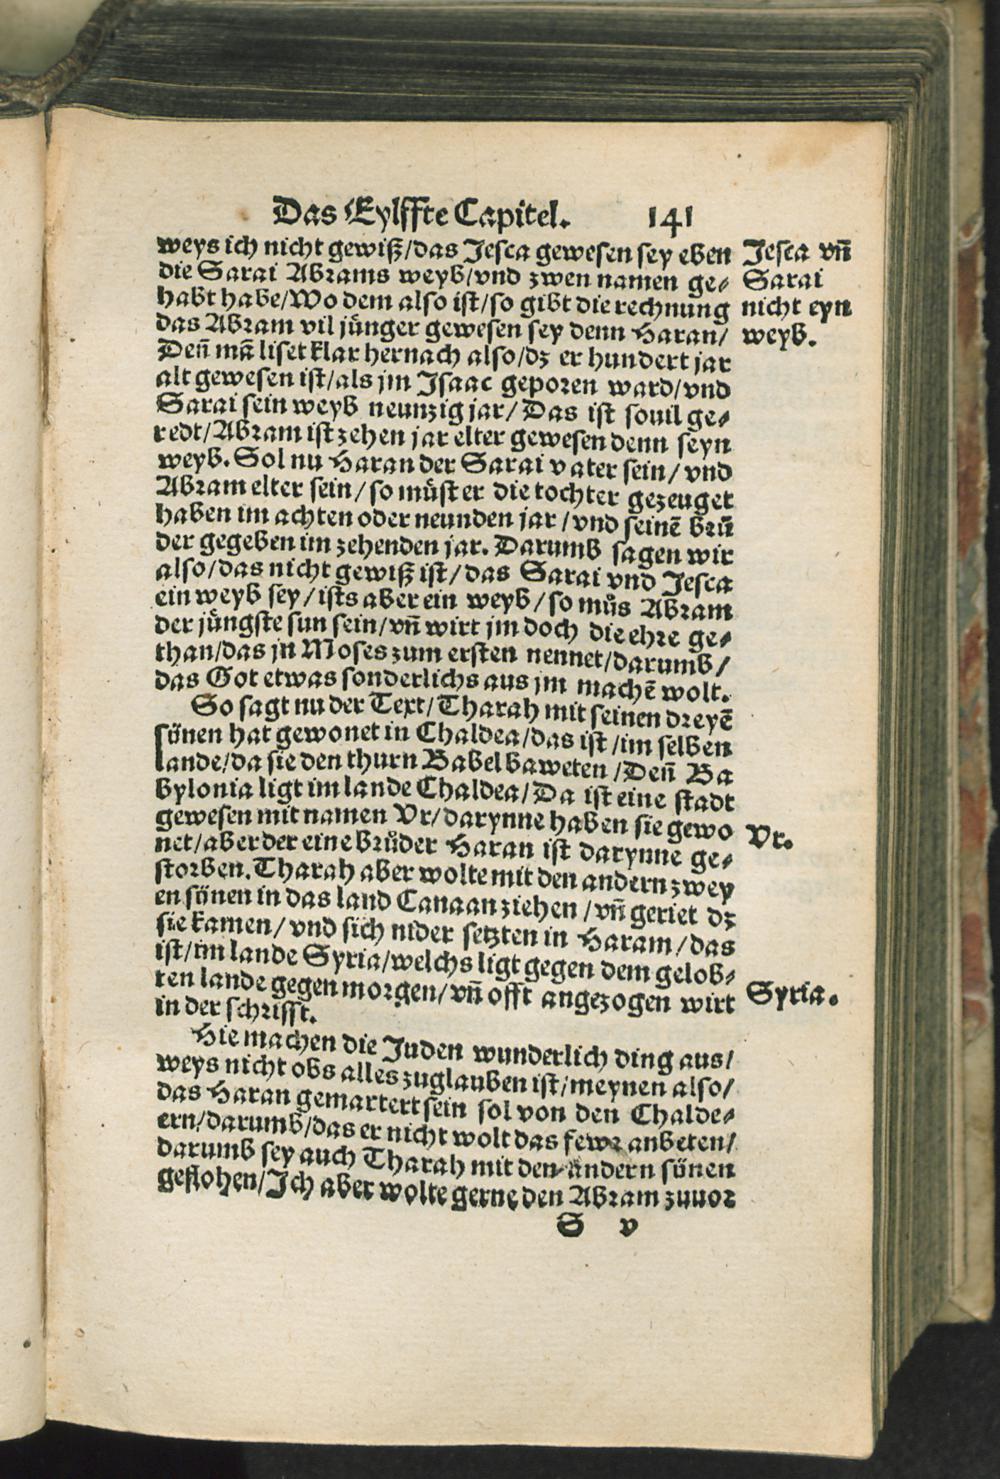 Das Eylffte Capitel. 141
weys ich nicht gewiß/das Jesca gewesen sey eben
die Sarai Abrams weyb/vnd zwen namen ge⸗
habt habe/Wo dem also ist/so gibt die rechnung
das Abram vil jünger gewesen sey denn Haran/
Deñ mā liset klar hernach also/dz er hundert jar
alt gewesen ist/als jm Isaac geporen ward/vnd
Sarai sein weyb neunzig jar/Das ist souil ge⸗
redt/Abram ist zehen jar elter gewesen denn seyn
weyb. Sol nu Haran der Sarai vater sein/vnd
Abram elter sein/so müst er die tochter gezeuget
haben im achten oder neunden jar/vnd seinē brů
der gegeben im zehenden jar. Darumb sagen wir
also/das nicht gewiß ist/das Sarai vnd Jesca
ein weyb sey/ists aber ein weyb/so můs Abram
der jüngste sun sein/vñ wirt jm doch die ehre ge⸗
than/das jn Moses zum ersten nennet/darumb/
das Got etwas sonderlichs aus jm machē wolt.
So sagt nu der Text/Tharah mit seinen dreyē
sünen hat gewonet in Chaldea/das ist/im selben
lande/da sie den thurn Babel baweten/Deñ Ba
bylonia ligt im lande Chaldea/Da ist eine stadt
gewesen mit namen Vr/darynne haben sie gewo
net/aber der eine brůder Haran ist darynne ge⸗
storben. Tharah aber wolte mit den andern zwey
en sünen in das land Canaan ziehen/vñ geriet dz
sie kamen/vnd sich nider setzten in Haram/das
ist/im lande Syria/welchs ligt gegen dem gelob⸗
ten lande gegen morgen/vñ offt angezogen wirt
in der schrifft.
Hie machen die Juden wunderlich ding aus/
weys nicht obs alles zuglauben ist/meynen also/
das Haran gemartert sein sol von den Chalde⸗
ern/darumb/das er nicht wolt das fewr anbeten/
darumb sey auch Tharah mit den andern sünen
geflohen/Ich aber wolte gerne den Abram zuuor
S v
Jesca vñ
Sarai
nicht eyn
weyb.
Vr.
Syria.